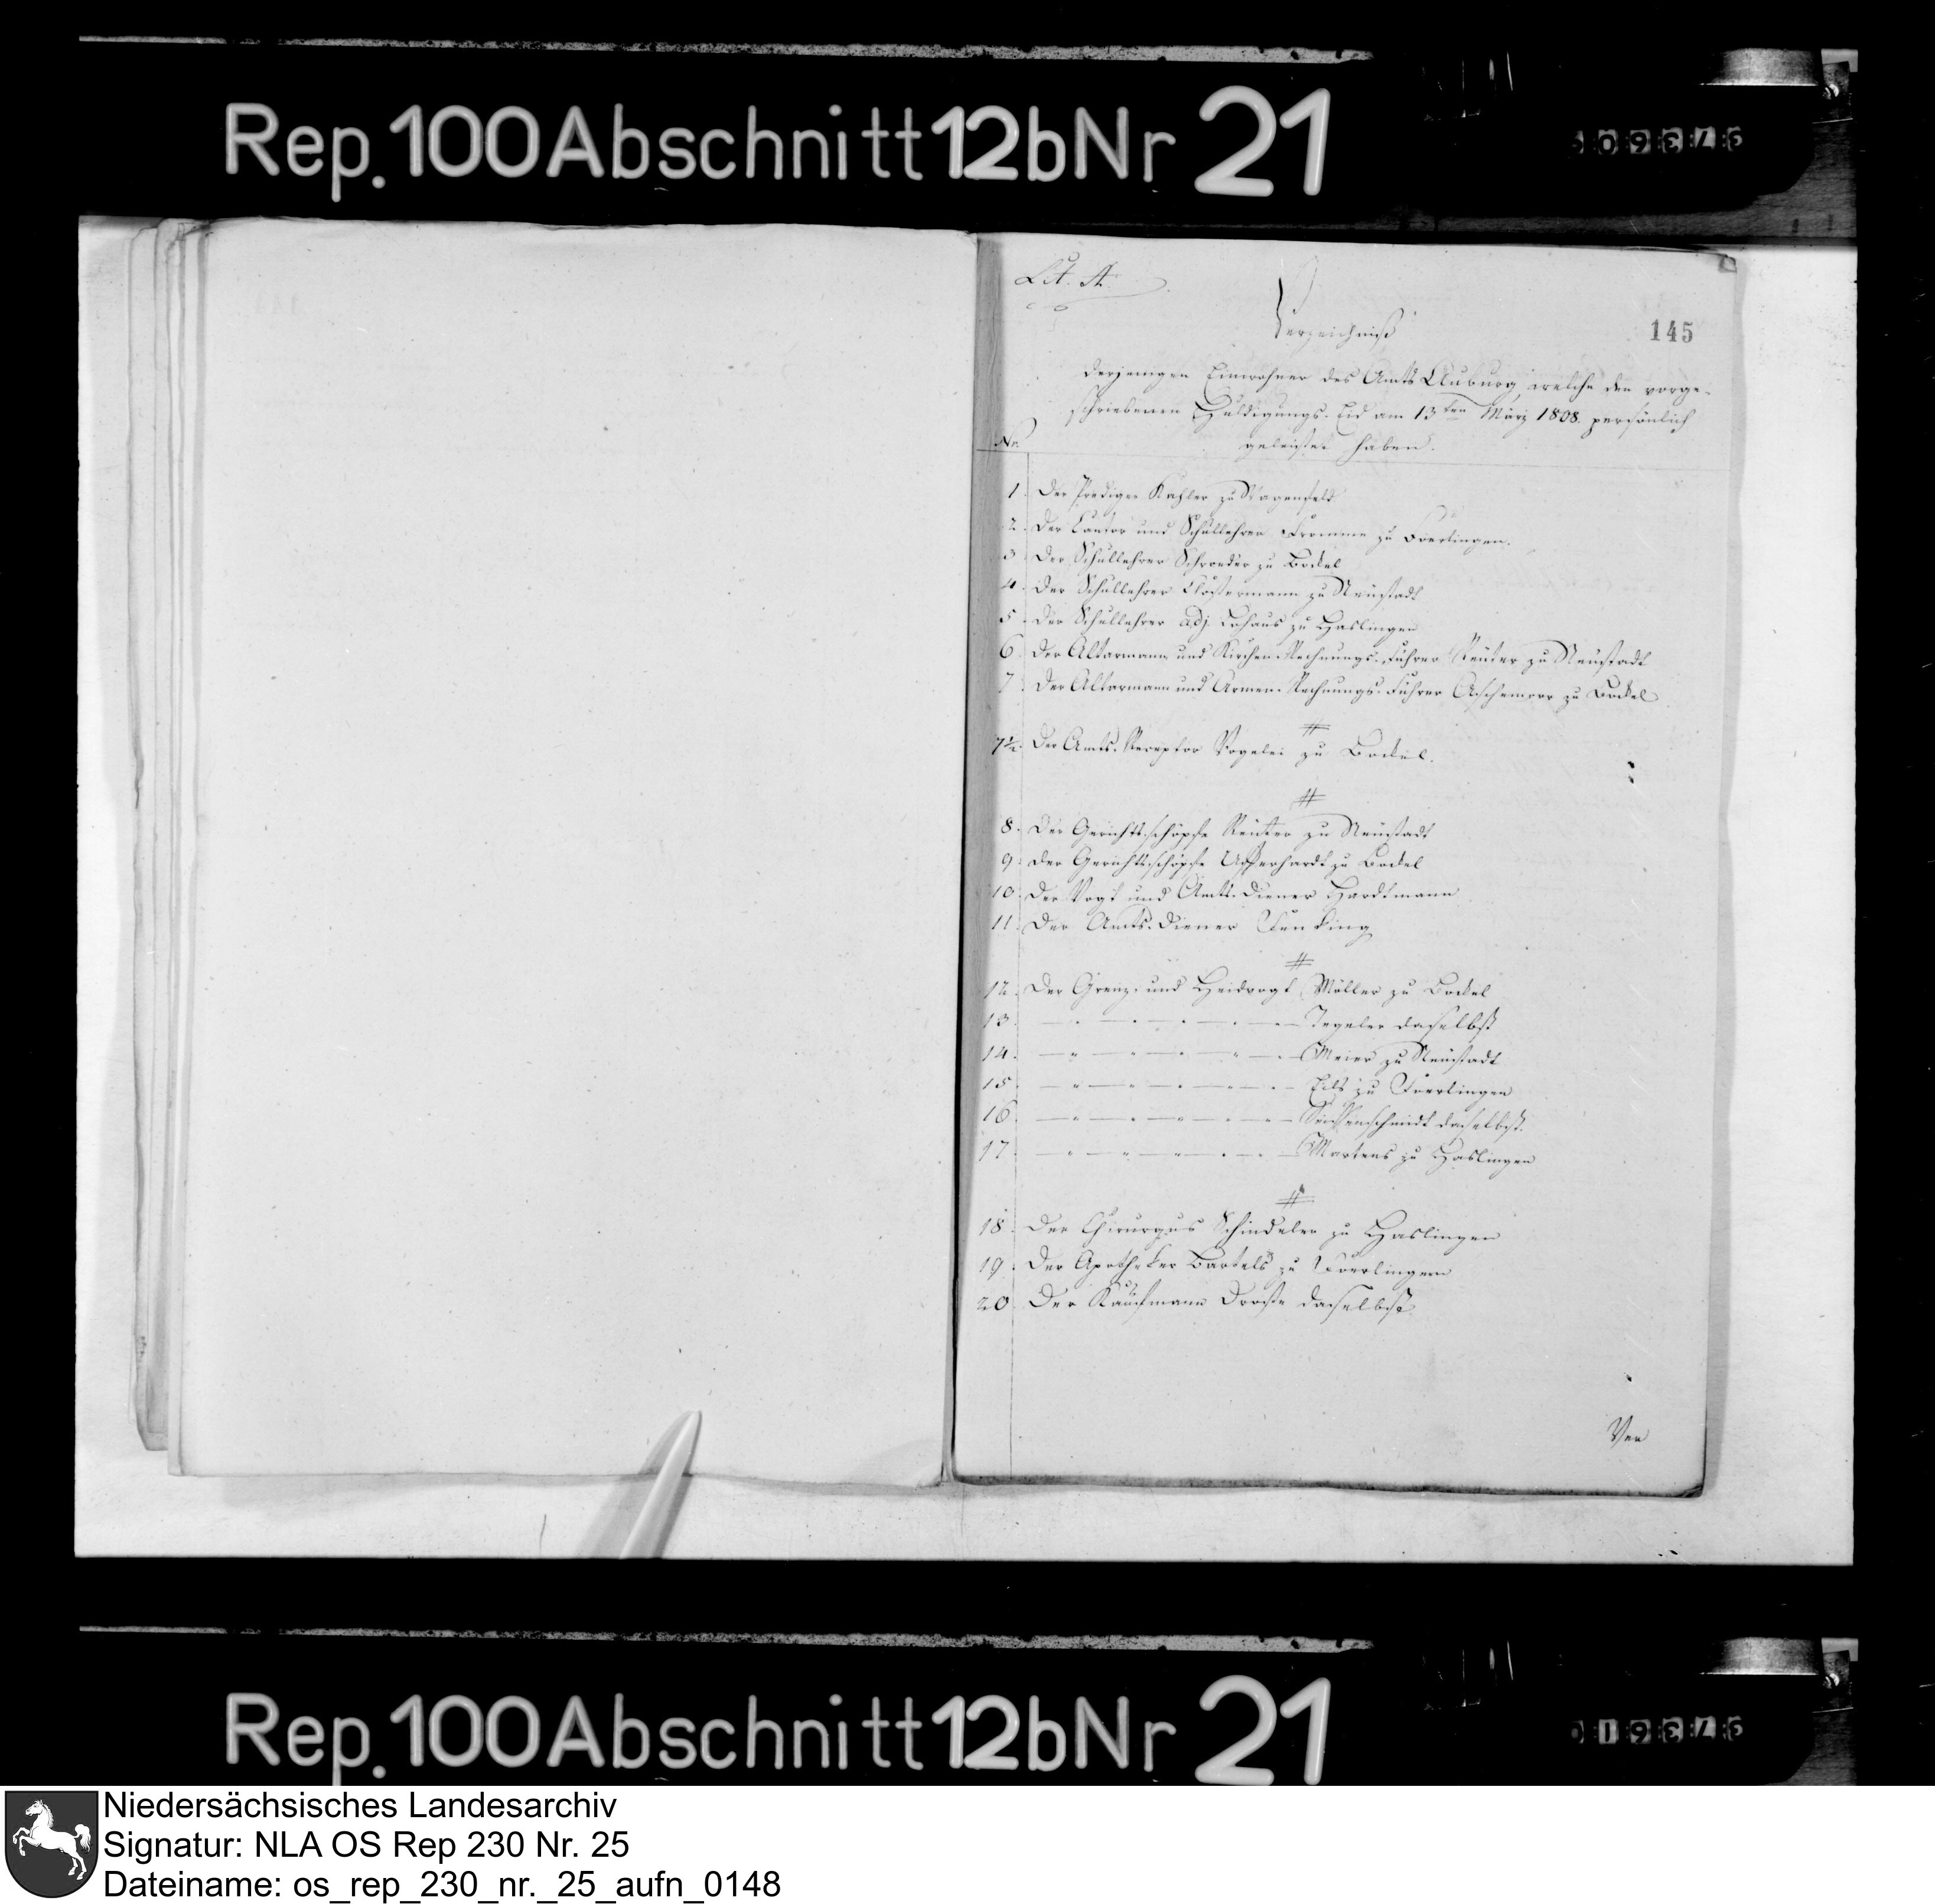 Rep. 100 Abschnitt 12b Nr 21
Lit. A.
Verzeichniß
145
derjenigen Einwohner des Amts Auburg, welche den vorge-
schriebenen Huldigungs-Eid am 13ten März 1808. persönlich
geleistet haben.
Nr.
1. Der Prediger Kahler zu Wagenfeld
2. Der Cantor und Schullehrer Fromme zu Foerlingen.
3. Der Schullehrer Schroeder zu Bockel
4. Der Schullehrer Clostermann zu Neustadt
5. Der Schullehrer adj. Lohaus zu Haslingen
6. Der Altarmann und Kirchen-Rechnungs-Führer Reuter zu Neustadt
7. Der Altarmann und Armen-Rechnungs-Führer Aschemoor zu Bockel
7½. Der Amts-Receptor Vogelei zu Bockel.
8. Der Gerichtsschöpfe Reuter zu Neustadt
9. Der Gerichtsschöpfe zu Bockel
10. Der Vogt und Amts-Diener Hardtmann
11. Der Amts-Diener Funking
12. Der Grenz- und Heidvogt Möller zu Bockel
13. Tegeler daselbst
14. Meier zu Neustadt
15. zu Foerlingen
16. daselbst.
17. Martens zu Haslingen
18. Der Chirurgus Schindeler zu Haslingen
19. Der Apotheker Bartels zu Foerlingen
20. Der Kaufmann Droste daselbst.
Ver
Rep. 100 Abschnitt 12b Nr 21
Niedersächsisches Landesarchiv
Signatur: NLA OS Rep 230 Nr. 25
Dateiname: os_rep_230_nr._25_aufn_0148